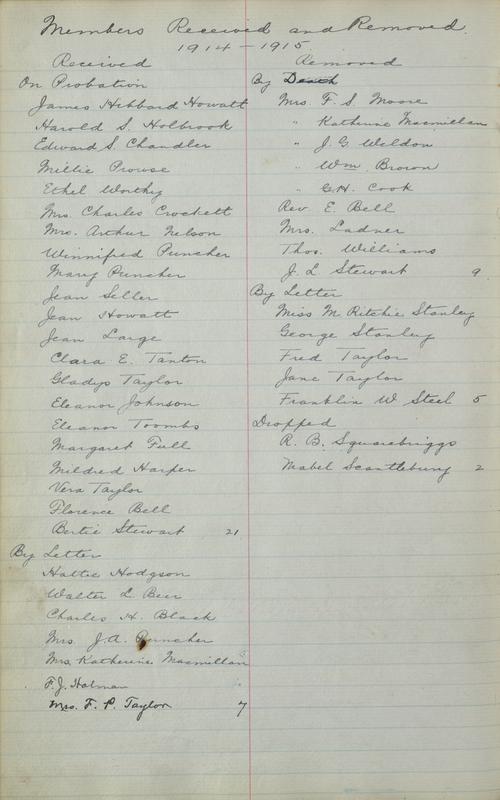 Members Received and Removed.
1914 - 1915.
Received
On Probation
James Hibbard Howatt
Harold S. Holbrook
Edward S. Chandler
Millie Prowse
Ethel Worthy
Mrs. Charles Crockett
Mrs. Arthur Nelson
Winnifred Puncher
Mary Puncher
Jean Seller
Jean Howatt
Jean Large
Clara E. Tanton
Gladys Taylor
Eleanor Johnson
Eleanor Toombs
Margaret Full
Mildred Harper
Vera Taylor
Florence Bell
Bertie Stewart 21
By Letter
Hattie Hodgson
Walter L. Beer
Charles H. Black
Mrs. J.A. Puncher
Mrs. Katherine Macmillan
F.J. Holman
Mrs. F. P. Taylor 7
Removed
By Death
Mrs. F. S. Moore
" Katherine Macmillan
" J. G. Weldon
" Wm. Brown
" G.H. Cook
Rev. E. Bell
Mrs. Ladner
Thos. Williams
J. L Stewart 9
By Letter
Miss M Ritchie Stanley
George Stanley
Fred Taylor
Jane Taylor
Franklin W Steel 5
Dropped
R. B. Squarebriggs
Mabel Scantlebury 2